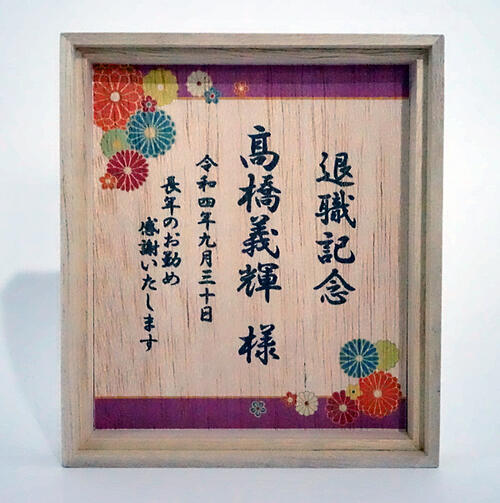 退職記念
髙橋義輝 様
令和四年九月三十日
長年のお勤め
感謝いたします